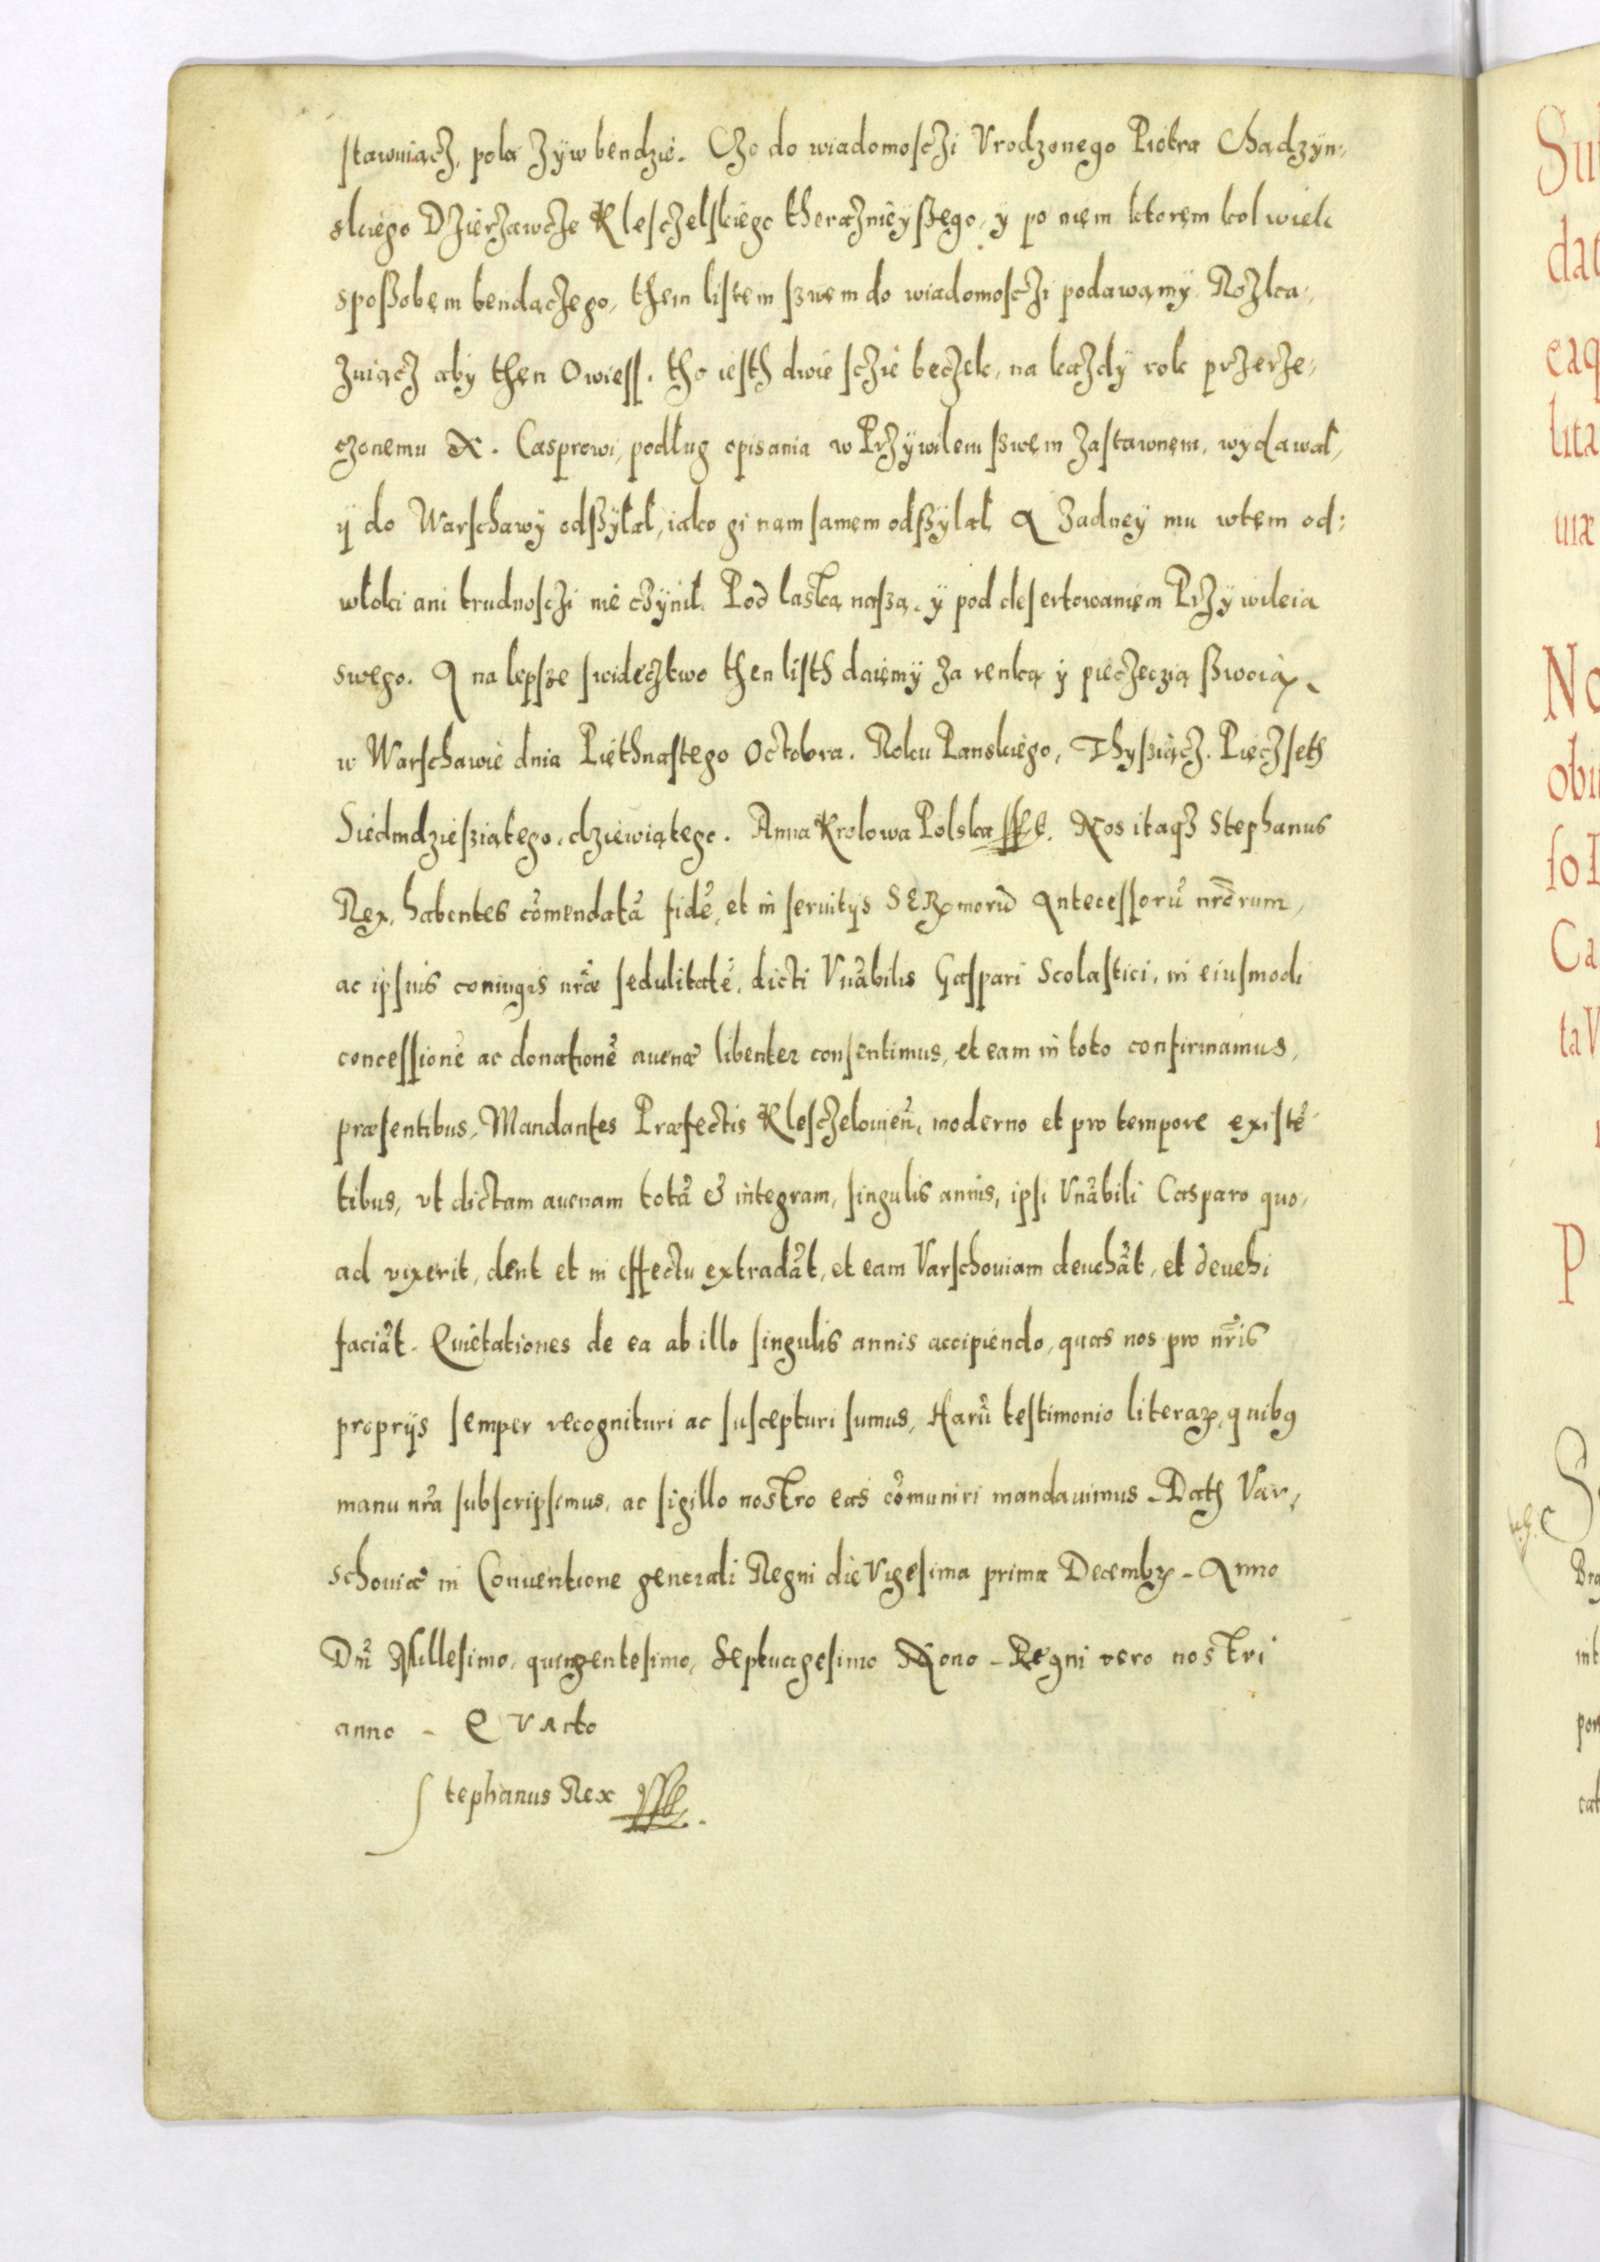 stawuiącz, poka zyw bendzie. Czo do wiadomosczi Vrodzonego Piotra Chądzyn-
skiego Dzierzawcze Klesczelskiego theraznieyßego, y po niem ktorem kolwiek
sposſobem bendączego, them listem swem do wiadomosczi podawamy. Rozka-
zuiącz aby then Owiess. tho iesth dwie sczie beczek, na kazdy rok przerze-
czonemu X. Casprowi, podług opisania w Przywileiu swem zastawnem, wydawał,
ÿ do Warschawÿ odßÿłał, iako gi nam samem odßÿlal A zadneÿ mu wtem od-
włoki ani trudnosczi nie czÿnił. Pod łaską naszą. ÿ pod desertowaniem Przÿwileia
swego. A na lepsze swideztwo then listh daiemy za renką ÿ pieczeczią swoią.
w Warschawie dnia Piethnastego Octobra. Roku Panskiego, Thysiącz. Pieczseth
Siedmdziesziątego dziewiątego. Anna Krolowa Polska sst. Nos itaqȝ Stephanus
Rex, habentes cōmendatā fidē, et in seruitijs antecessorū nrōrum,
ac ipsius coniugis nrǣ sedulitatē, dicti Vnābilis Gaspari Scolastici, in eiusmodi
concessionē ac donationē auenæ libenter consentimus, et eam in toto confirmamus,
præsentibus, Mandantes Præfectis Klesczelouien̄, moderno et pro tempore existē-
tibus, vt dictam auenam totā & integram, singulis annis, ipsi Vnābili Casparo quo-
ad vixerit, dent et in effectu extradāt, et eam Varschouiam deuehāt, et deuehi
faciāt. Quietationes de ea ab illo singulis annis accipiendo, quas nos pro nr̄is
proprijs semper recognituri ac suscepturi sumus, Harū testimonio literaꝝ, quibꝯ
manu nr̄a subscripsimus, ac sigillo nostro eas cōmuniri mandauimus. Dath Var-
schouiæ in Conuentione generali Regni die Vigesima prima Decembꝝ. Anno
Dn̄i Millesimo, quingentesimo, Septuagesimo Nono. Regni vero nostri
anno - Quarto
Stephanus Rex sst.